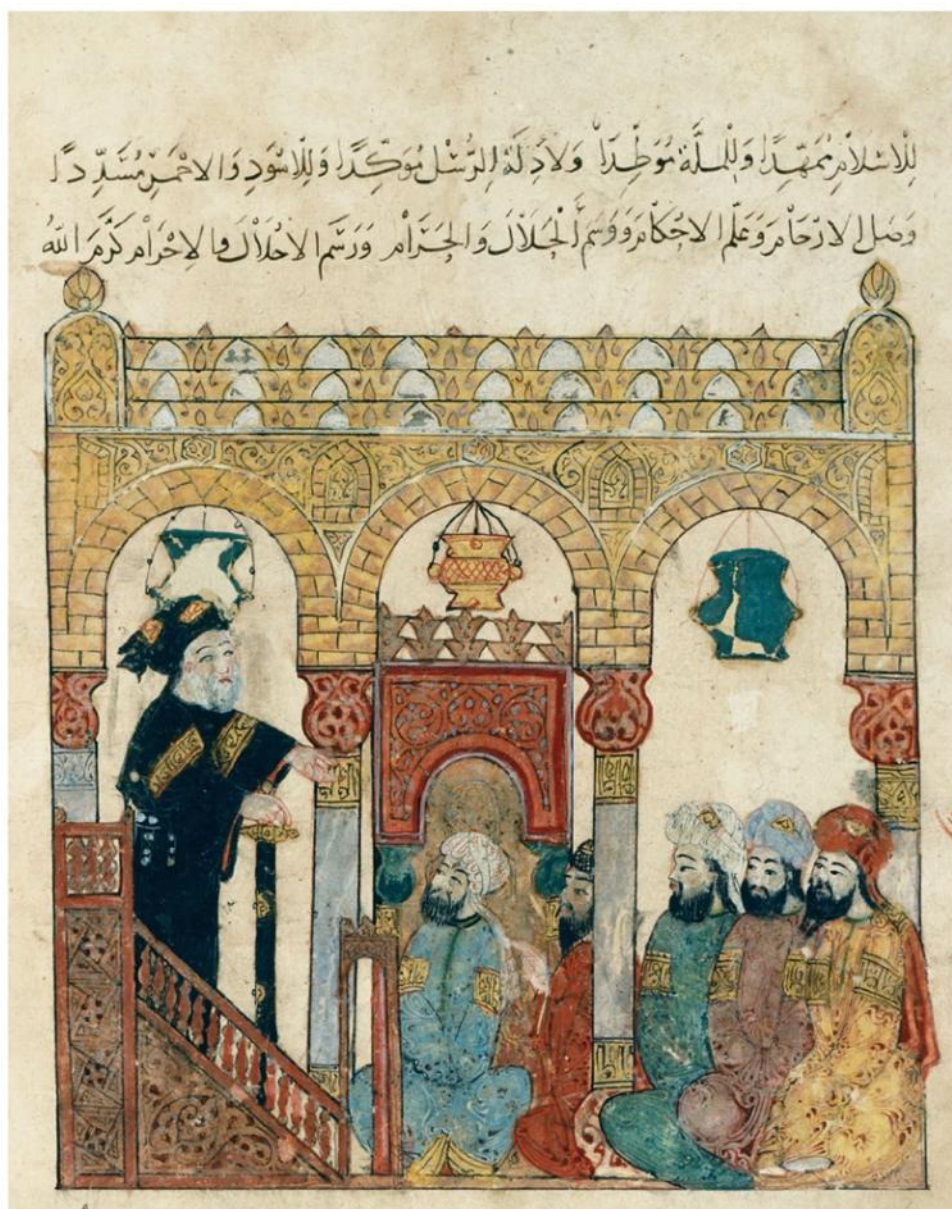 لِلْاسْلَامِ مُمَهِّدًا وَلِلْمِلَّةِ مُوَطِّدًا وَلادِلَةِ الرُّسْلِ مُوَكِّدًا وَلِلاسْوَدِ وَالاحْمَرِ مُسَدِّدًا
وَصَلَ الارْحَامَ وَعَلَّمَ الاحْكَامَ وَوَسَمَ الْحَلَالَ وَالْحَرَامَ وَرَسَّمَ الاحْلَالَ والاحْرَامَ كَرَّمَ اللهُ